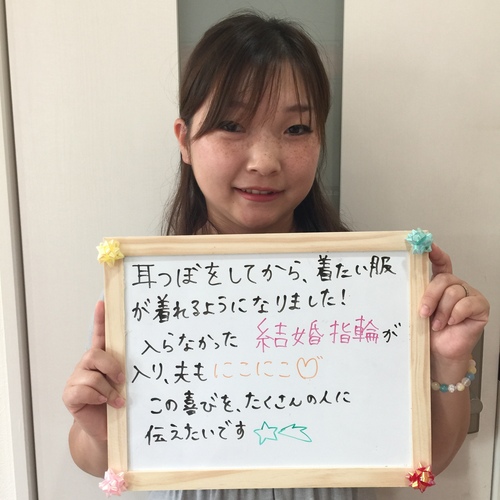 耳つぼをしてから、着たい服
が着れるようになりました!
入らなかった 結婚指輪が
入り、夫もにこにこ♡
この喜びを、たくさんの人に
伝えたいです☆